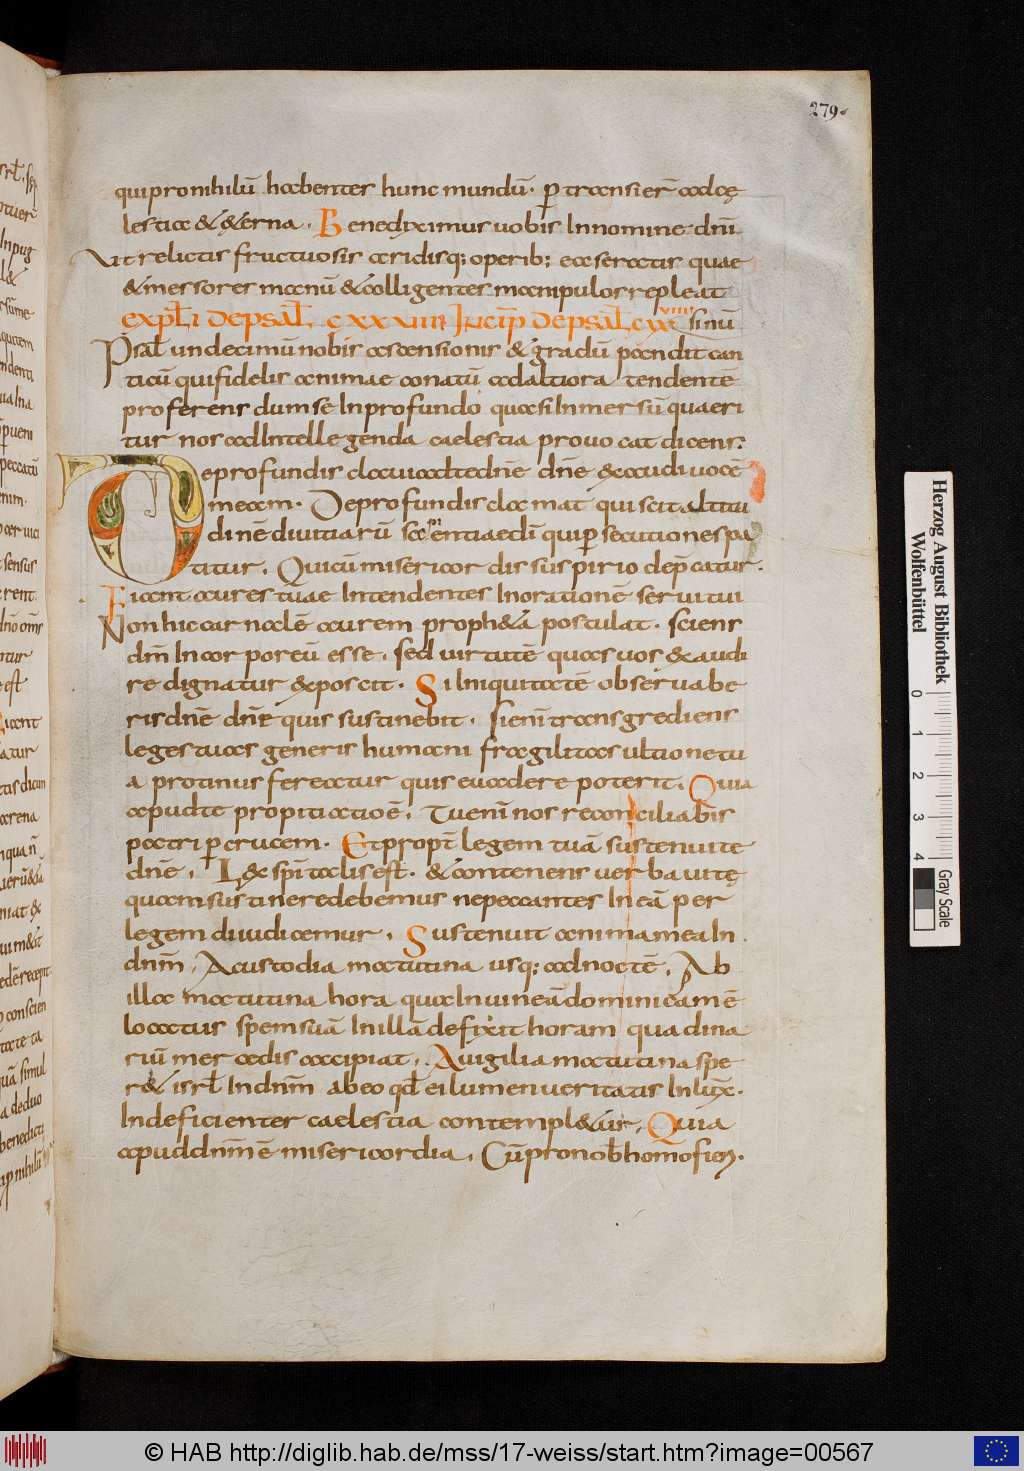 279.
qui pro nihilū habenter hunc mundū. p̄ transierī ad cae
lestia & &erna. Benediximus uobis In nomine dn̄i
Ut relictis fructuosis aridisq; operib; ea seratis quae
& messores manū & colligentes manipulos repleat
expl̄i de psal̄. cxxxviii Incip̄ de psal̄ cxxviiii sinū
Psal̄ undecimū nobis ascensionis & gradū pandit can
ticū qui fidelis animae conatū ad altiora tendentē
proferens dum se In profundo quasi Inmersū quaeri
tur nos ad Intellegenda caelestia prouocat dicens.
De profundis clamaui ad te dn̄e dn̄e exaudi uocē
meam. De profundis clamat qui scit altitu
dinē diuitiarū scientiae dī qui p̄secutiones pa
titur. Qui cū misericordis suspirio dep̄catur.
Fiant aures tuae Intendentes In orationē serui tui
Non hic carnalē aurem proph&a postulat. sciens
dn̄m Incorporeū esse. sed uirtutē quas uos exaudi
re dignatur exposcit. Si Iniquitatē obseruabe
ris dn̄e dn̄e quis sustinebit. Si enī transgrediens
leges tuas generis humani fragilitas ultione tu
a protinus fereatur quis euadere poterit. Quia
apud te propitiatio ē. Tu enī nos reconciliabis
patri p̄ crucem. Et propt̄ legem tuā sustenui te
dn̄e. L&x sp̄italis est. & continens uerba uitę
quam sustinere debemus ne peccantes In eā per
legem diiudicemur. Sustenuit anima mea In
dn̄m. A custodia matutina usq; ad noctē. Ab
illa matutina hora qua In uineā dominicam ē
locatus spem suā In illā defixit horam qua dina
riū mercedis accipiat. A uigilia matutina spe
r& isrl̄ In dn̄m ab eo qd̄ ei lumen ueritatis In lux.
Indeficienter caelestia contempl&ur. Quia
apud dn̄m ē misericordia. Cū pro nob̄ homo fieri.
Herzog August Bibliothek
Wolfenbüttel
0 1 2 3 4
Gray Scale
© HAB http://diglib.hab.de/mss/17-weiss/start.htm?image=00567